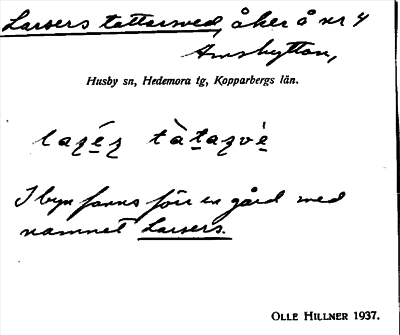 Larsers tattarsved, åker å nr 4
Amsbyttan,
Husby sn, Hedemora tg, Kopparbergs län.
I byn fanns förr en gård med
namnet Larsers.
OLLE HILLNER 1937.